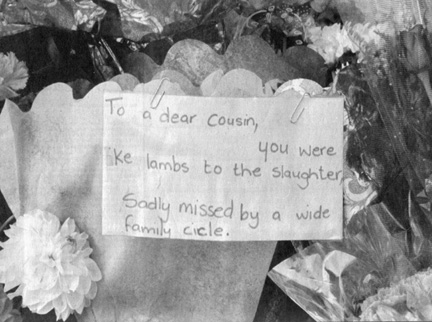 To a dear cousin,
you were
ke lambs to the slaughter
Sadly missed by a wide
family cicle.